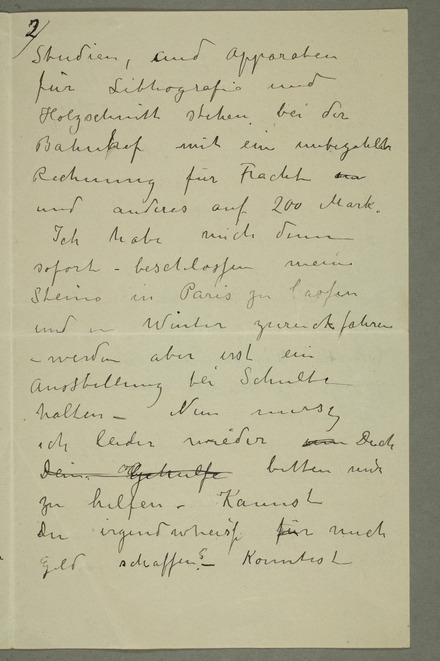 2/
Studien, und Apparaten
für Lithografie und
Holzschnitt stehen bei der
Bahnhof mit ein unbezahlte
Rechnung für Fracht
und anderes auf 200 Mark.
Ich habe mich denn
sofort - beschlossen meine
Steine in Paris zu lassen
und in Winter zurückfahren
- werden aber erst ein
Ausstellung bei Schulte
halten - Nun muss
ich leider wieder Dich
Dein Gehülfe bitten mir
zu helfen - Kannst
Du irgendwheise für mich
Geld schaffen? - Konntest